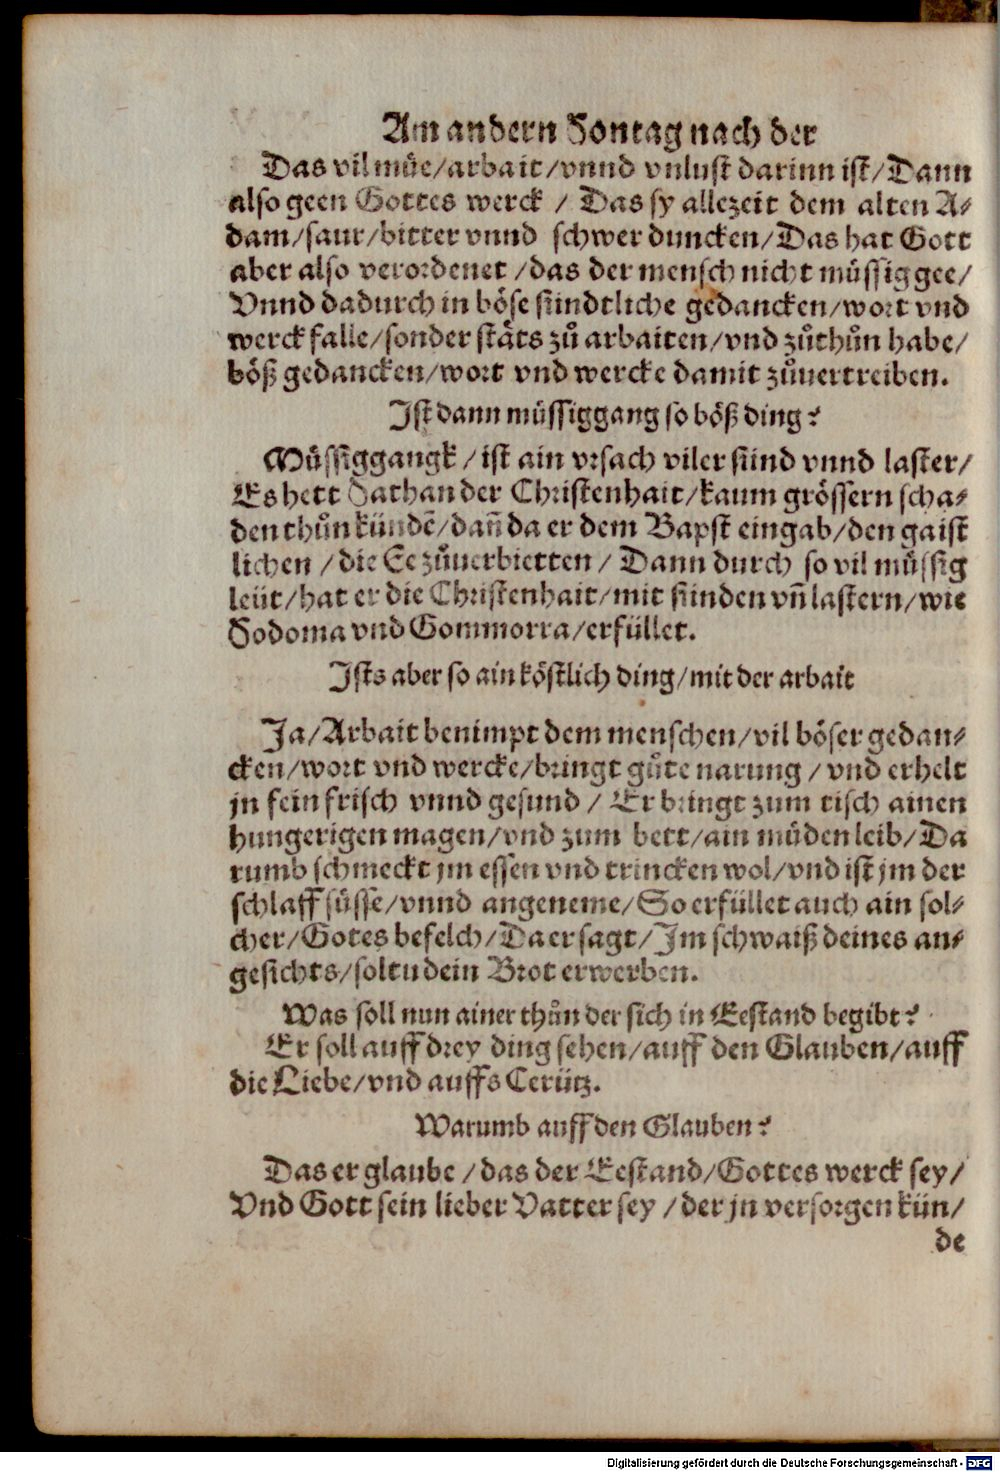 Am andern Sontag nach der
Das vil müe/arbait/vnnd vnlust darinn ist/Dann
also geen Gottes werck / Das sy allezeit dem alten A-
dam/saur/bitter vnnd schwer duncken/Das hat Gott
aber also verordenet /das der mensch nicht müssig gee/
Vnnd dadurch in böse sündtliche gedancken/wort vnd
werck falle/sonder stäts zů arbaiten/vnd zůthůn habe/
böß gedancken/wort vnd wercke damit zůuertreiben.
Ist dann müssiggang so böß ding?
Müssiggangk /ist ain vrsach viler sünd vnnd laster/
Es hett Sathan der Christenhait/kaum grössern scha-
den thůn kündẽ/dañ da er dem Bapst eingab/den gaist
lichen /die Ee zůuerbietten / Dann durch so vil müssig
leüt/hat er die Christenhait/mit sünden vñ lastern/wie
Sodoma vnd Gommorra/erfüllet.
Ists aber so ain köstlich ding/mit der arbait
Ja/Arbait benimpt dem menschen/vil böser gedan-
cken/wort vnd wercke/bringt gůte narung /vnd erhelt
jn fein frisch vnnd gesund / Er bringt zum tisch ainen
hungerigen magen/vnd zum bett/ain müden leib/Da
rumb schmeckt jm essen vnd trincken wol/vnd ist jm der
schlaff süsse/vnnd angeneme/So erfüllet auch ain sol-
cher/Gotes befelch/Da er sagt/Im schwaiß deines an-
gesichts/soltu dein Brot erwerben.
Was soll nun ainer thůn der sich in Eestand begibt?
Er soll auff drey ding sehen/auff den Glauben/auff
die Liebe/vnd auffs Cerütz.
Warumb auff den Glauben?
Das er glaube /das der Eestand/Gottes werck sey/
Vnd Gott sein lieber Vatter sey /der jn versorgen kün/
de
Digitalisierung gefördert durch die Deutsche Forschungsgemeinschaft - DFG